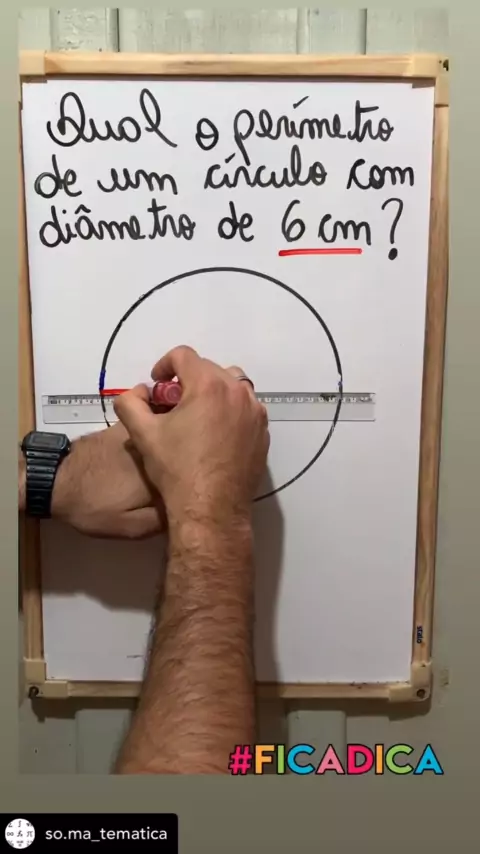 Qual o perímetro
de um círculo com
diâmetro de 6 cm?
#FICADICA
so.ma_tematica